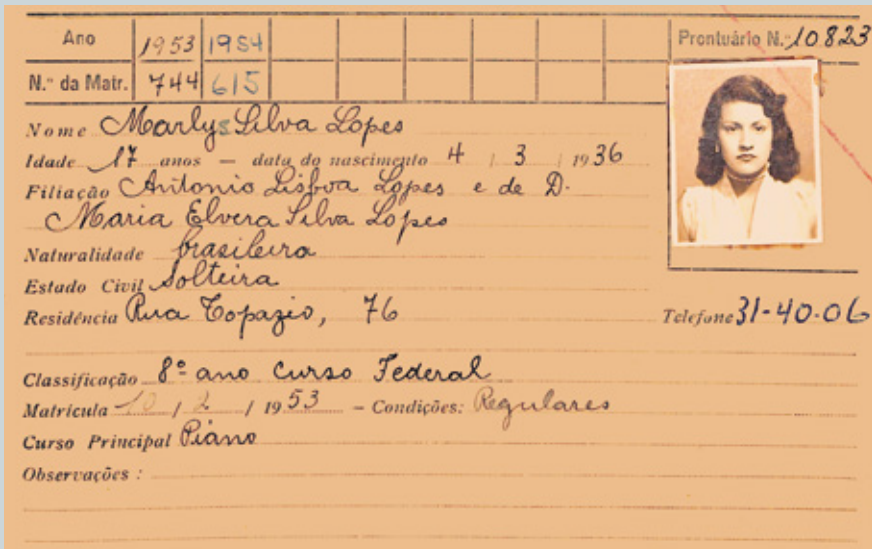 Ano 1953 1954 Prontuário N.º 10823
N.º da Matr. 744 615
Nome Marlys Silva Lopes
Idade 17 anos — data do nascimento 4 / 3 / 1936
Filiação Antonio Lisboa Lopes e de D.
Maria Elvera Silva Lopes
Naturalidade brasileira
Estado Civil Solteira
Residência Rua Topazio, 76 Telefone 31-40-06
Classificação 8º ano Curso Federal
Matrícula 10 / 2 / 1953 — Condições: Regulares
Curso Principal Piano
Observações :